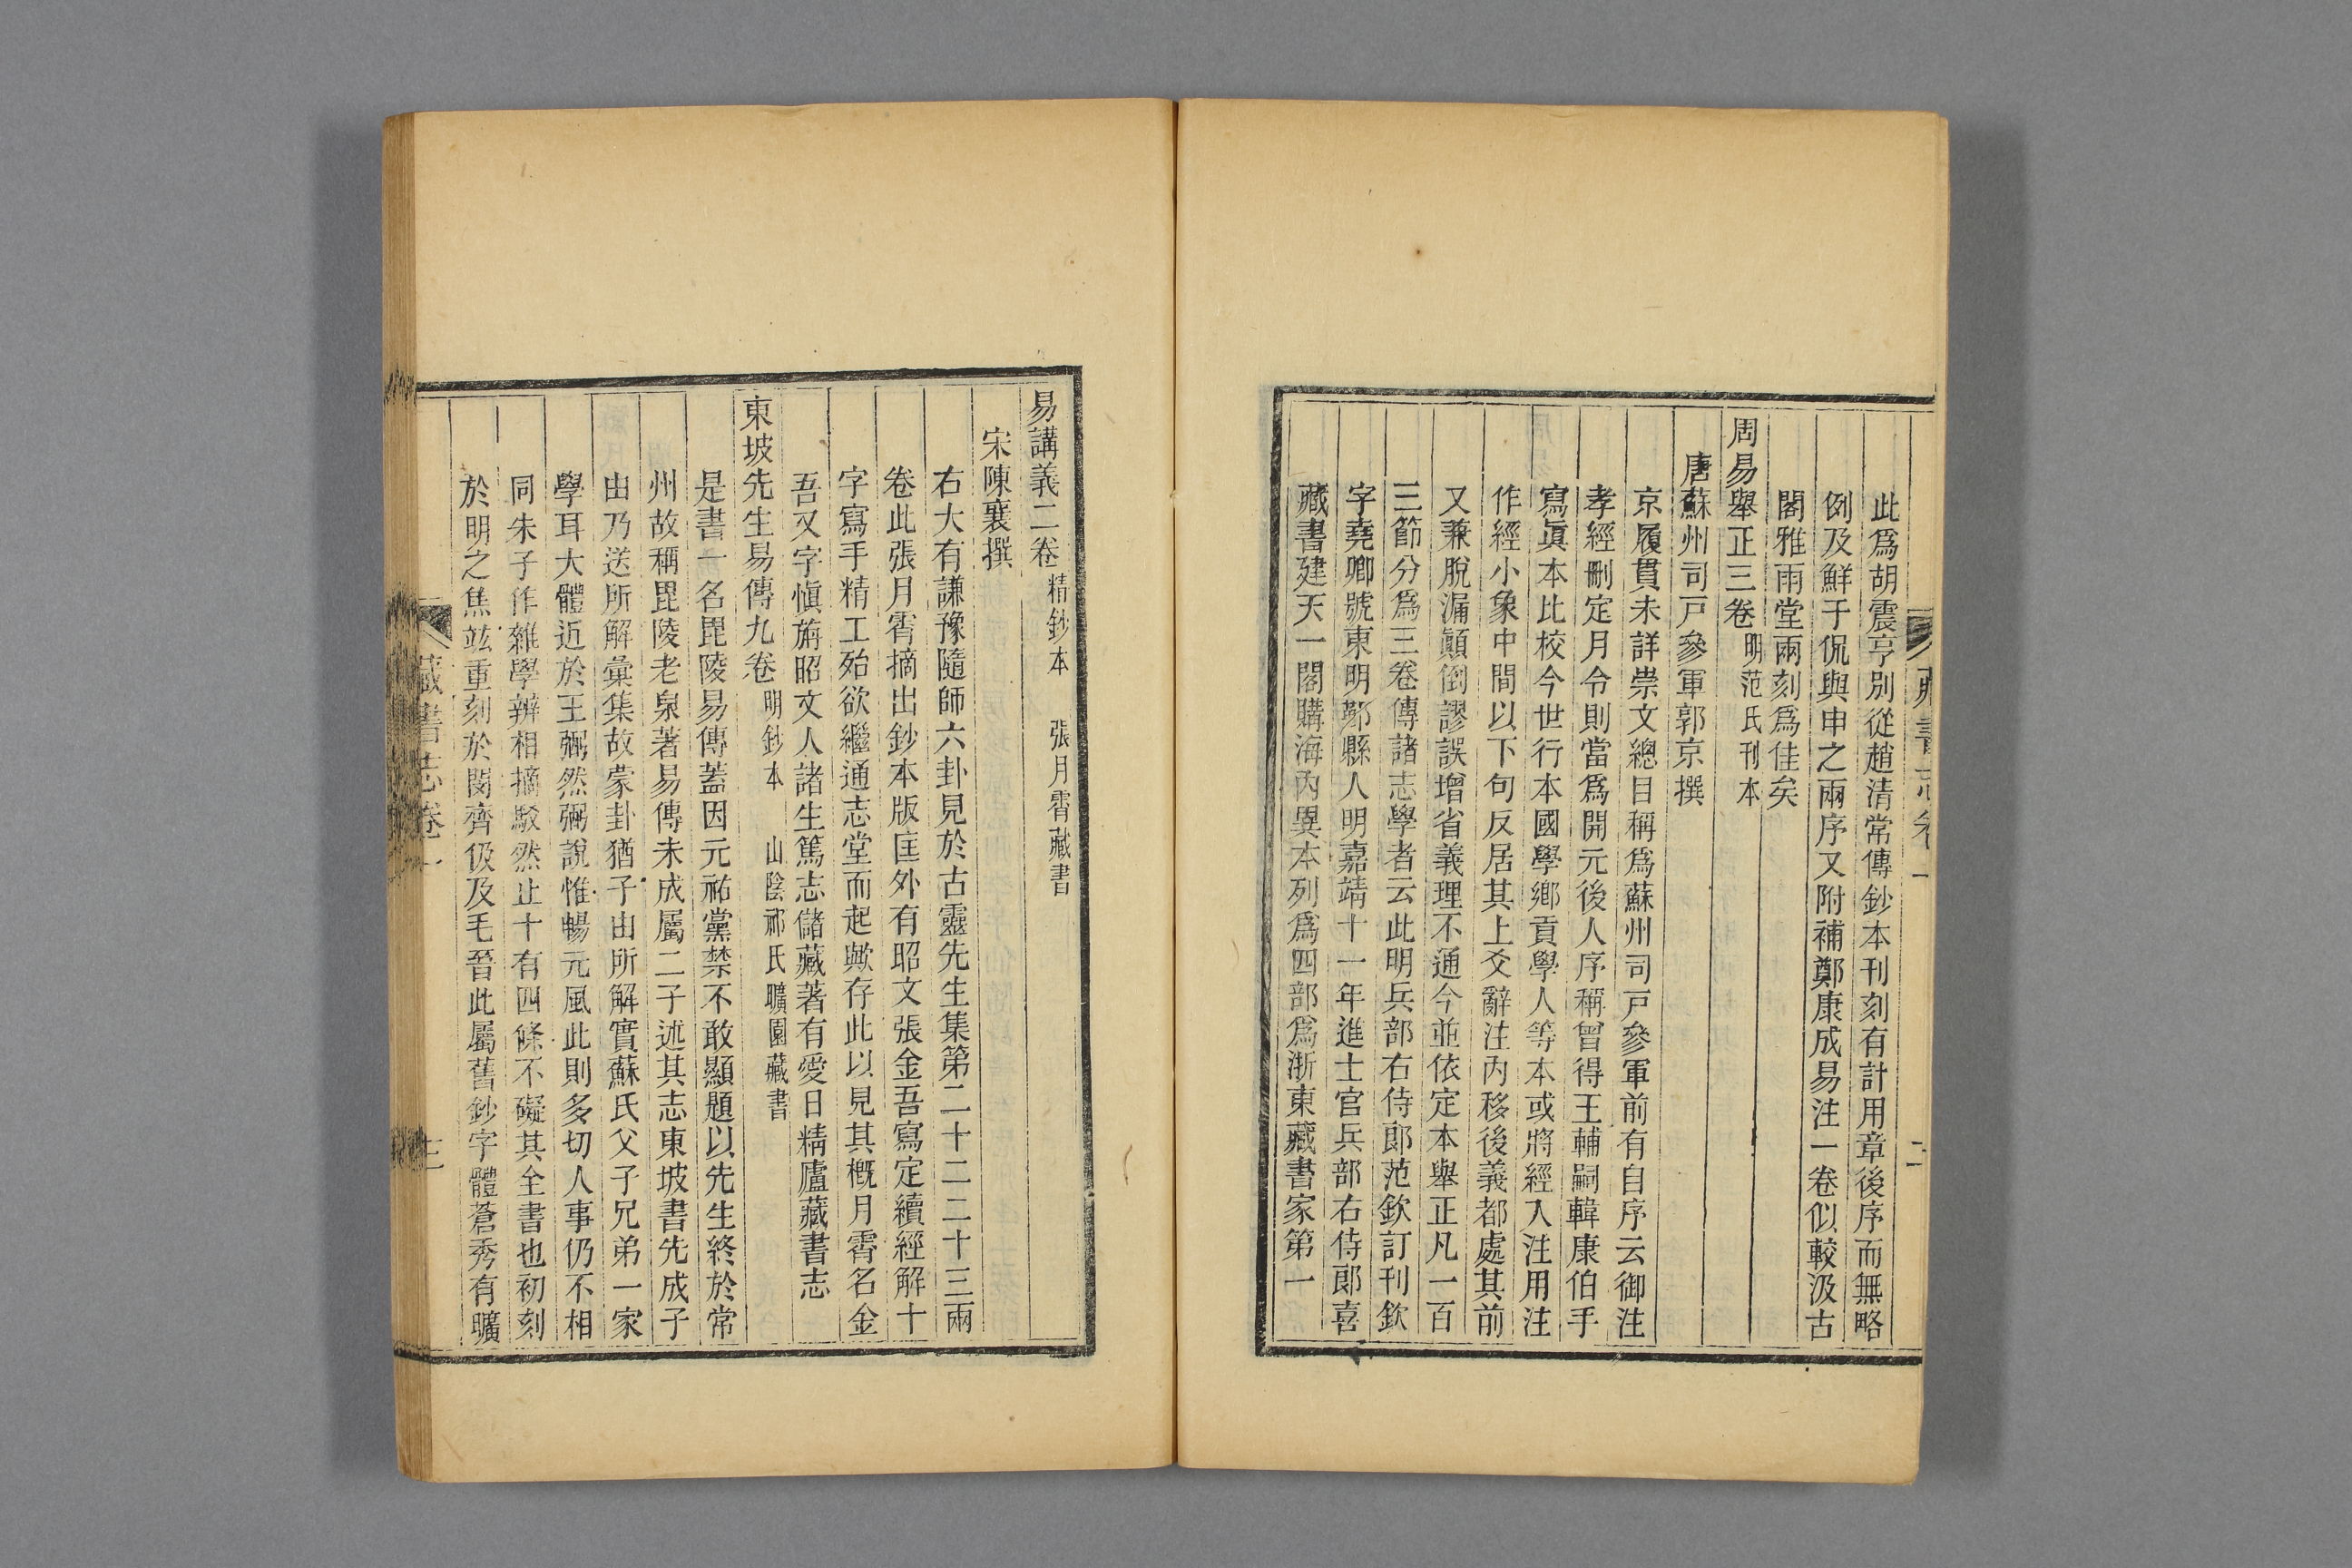 此爲胡震亨別從趙清常傳鈔本刊刻有計用章後序而無略
例及鮮于侃與申之兩序又附補鄭康成易注一卷似較汲古
閣雅雨堂兩刻爲佳矣
周易舉正三卷 明范氏刊本
唐蘇州司戸參軍郭京撰
京履貫未詳崇文總目稱爲蘇州司戸參軍前有自序云御注
孝經刪定月令則當爲開元後人序稱曾得王輔嗣韓康伯手
寫眞本比校今世行本國學鄉貢學人等本或將經入注用注
作經小象中間以下句反居其上爻辭注內移後義都處其前
又兼脫漏顚倒謬誤增省義理不通今並依定本舉正凡一百
三節分爲三卷傳諸志學者云此明兵部右侍郎范欽訂刊欽
字堯卿號東明鄞縣人明嘉靖十一年進士官兵部右侍郎喜
藏書建天一閣購海內異本列爲四部爲浙東藏書家第一
易講義二卷 精鈔本 張月霄藏書
宋陳襄撰
右大有謙豫隨師六卦見於古靈先生集第二十二二十三兩
卷此張月霄摘出鈔本版匡外有昭文張金吾寫定續經解十
字寫手精工殆欲繼通志堂而起歟存此以見其槪月霄名金
吾又字愼旃昭文人諸生篤志儲藏著有愛日精廬藏書志
東坡先生易傳九卷 明鈔本 山陰祁氏曠園藏書
是書一名毘陵易傳蓋因元祐黨禁不敢顯題以先生終於常
州故稱毘陵老泉著易傳未成屬二子述其志東坡書先成子
由乃送所解彙集故蒙卦猶子由所解實蘇氏父子兄弟一家
學耳大體近於王弼然弼說惟暢元風此則多切人事仍不相
同朱子作雜學辨相摘駁然止十有四條不礙其全書也初刻
於明之焦竑重刻於閔齊伋及毛晉此屬舊鈔字體蒼秀有曠
藏書志卷一 三